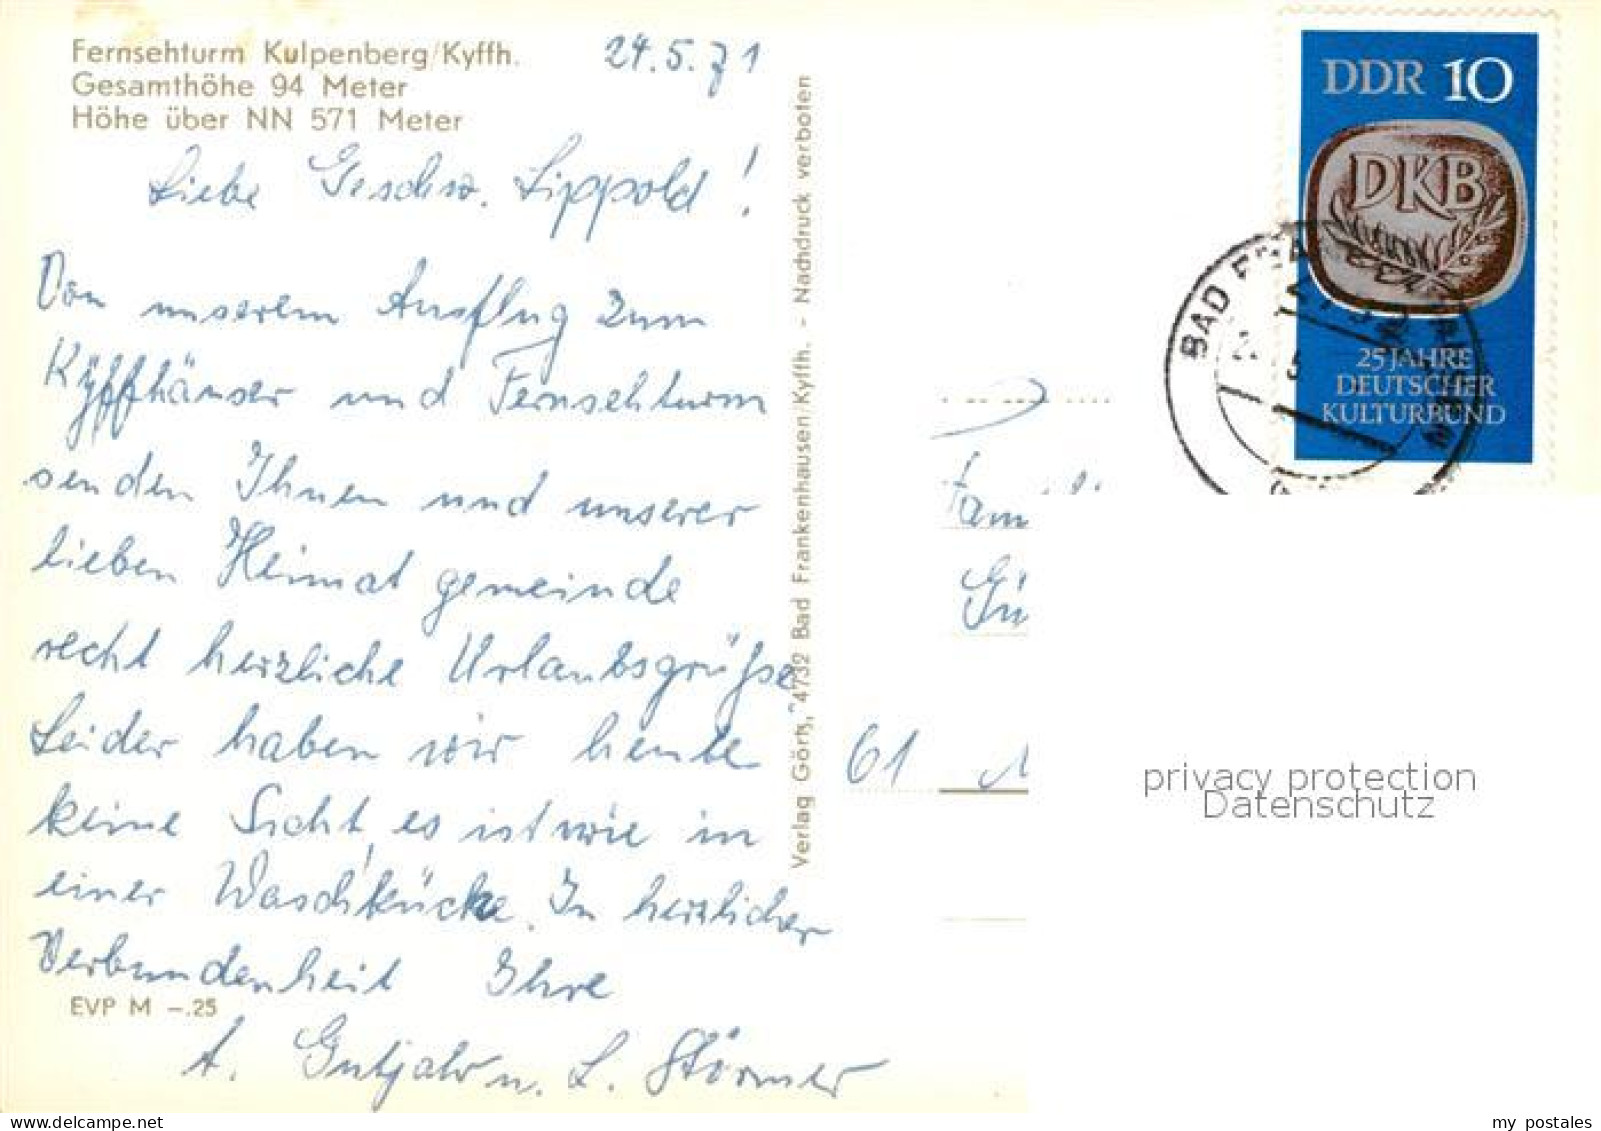 Fernsehturm Kulpenberg/Kyffh.
Gesamthöhe 94 Meter
Höhe über NN 571 Meter
24.5.71
Liebe Geschw. Lippold!
Von unserem Ausflug zum
Kyffhäuser und Fernsehturm
senden Ihnen und unserer
lieben Heimatgemeinde
recht herzliche Urlaubsgrüße
Leider haben wir heute
keine Sicht, es ist wie in
einer Waschküche. In herzlicher
Verbundenheit Ihre
EVP M -.25
A. Gutjahr u. L. Störmer
Verlag Görtz, 4732 Bad Frankenhausen/Kyffh. - Nachdruck verboten
DDR 10
DKB
25 JAHRE
DEUTSCHER
KULTURBUND
BAD
Fam
61
privacy protection
Datenschutz
my postales